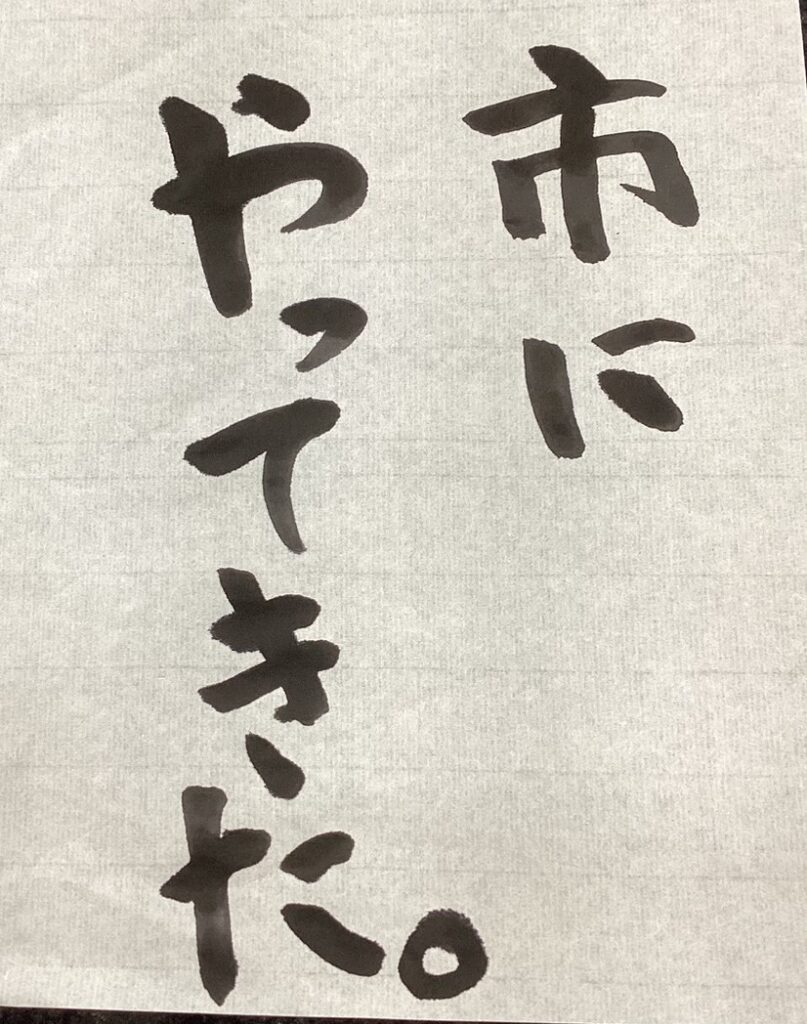 市に
やってきた。